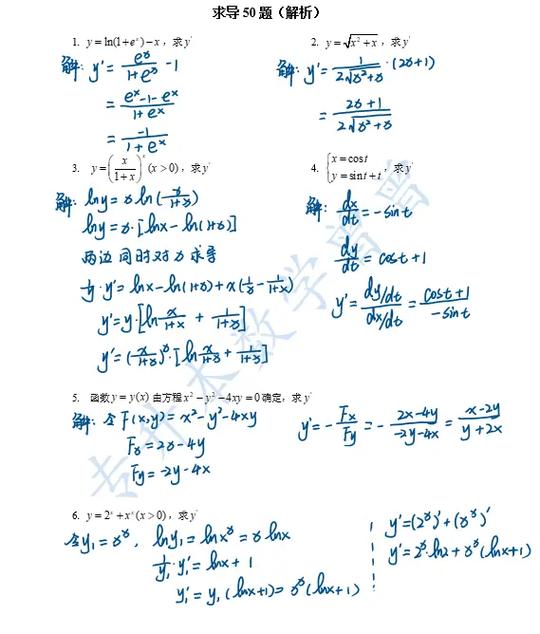 求导50题（解析）
1. y=ln(1+eˣ)-x，求y'
解: y' = eˣ/(1+eˣ) - 1
= (eˣ-1-eˣ)/(1+eˣ)
= -1/(1+eˣ)
2. y=√(x²+x)，求y'
解: y' = 1/(2√(x²+x)) · (2x+1)
= (2x+1)/(2√(x²+x))
3. y=(x/(1+x))ˣ (x>0)，求y'
解: lny = x ln(x/(1+x))
lny = x·[lnx-ln(1+x)]
两边同时对x求导
1/y · y' = lnx-ln(1+x)+x(1/x - 1/(1+x))
y' = y·[ln x/(1+x) + 1/(1+x)]
y' = (x/(1+x))ˣ·[ln x/(1+x) + 1/(1+x)]
4. {x=cost
y=sint+t，求y'
解: dx/dt = -sint
dy/dt = cost+1
y' = (dy/dt)/(dx/dt) = (cost+1)/(-sint)
5. 函数y=y(x)由方程x²-y²-4xy=0确定，求y'
解: 令F(x,y)=x²-y²-4xy
Fx=2x-4y
Fy=-2y-4x
y' = -Fx/Fy = -(2x-4y)/(-2y-4x) = (x-2y)/(y+2x)
6. y=2ˣ+xˣ(x>0)，求y'
令y₁=xˣ, lny₁=lnxˣ=x lnx
1/y₁ · y₁' = lnx+1
y₁' = y₁(lnx+1)=xˣ(lnx+1)
y'=(2ˣ)'+(xˣ)'
y'=2ˣ·ln2+xˣ(lnx+1)
专升本数学曾曾